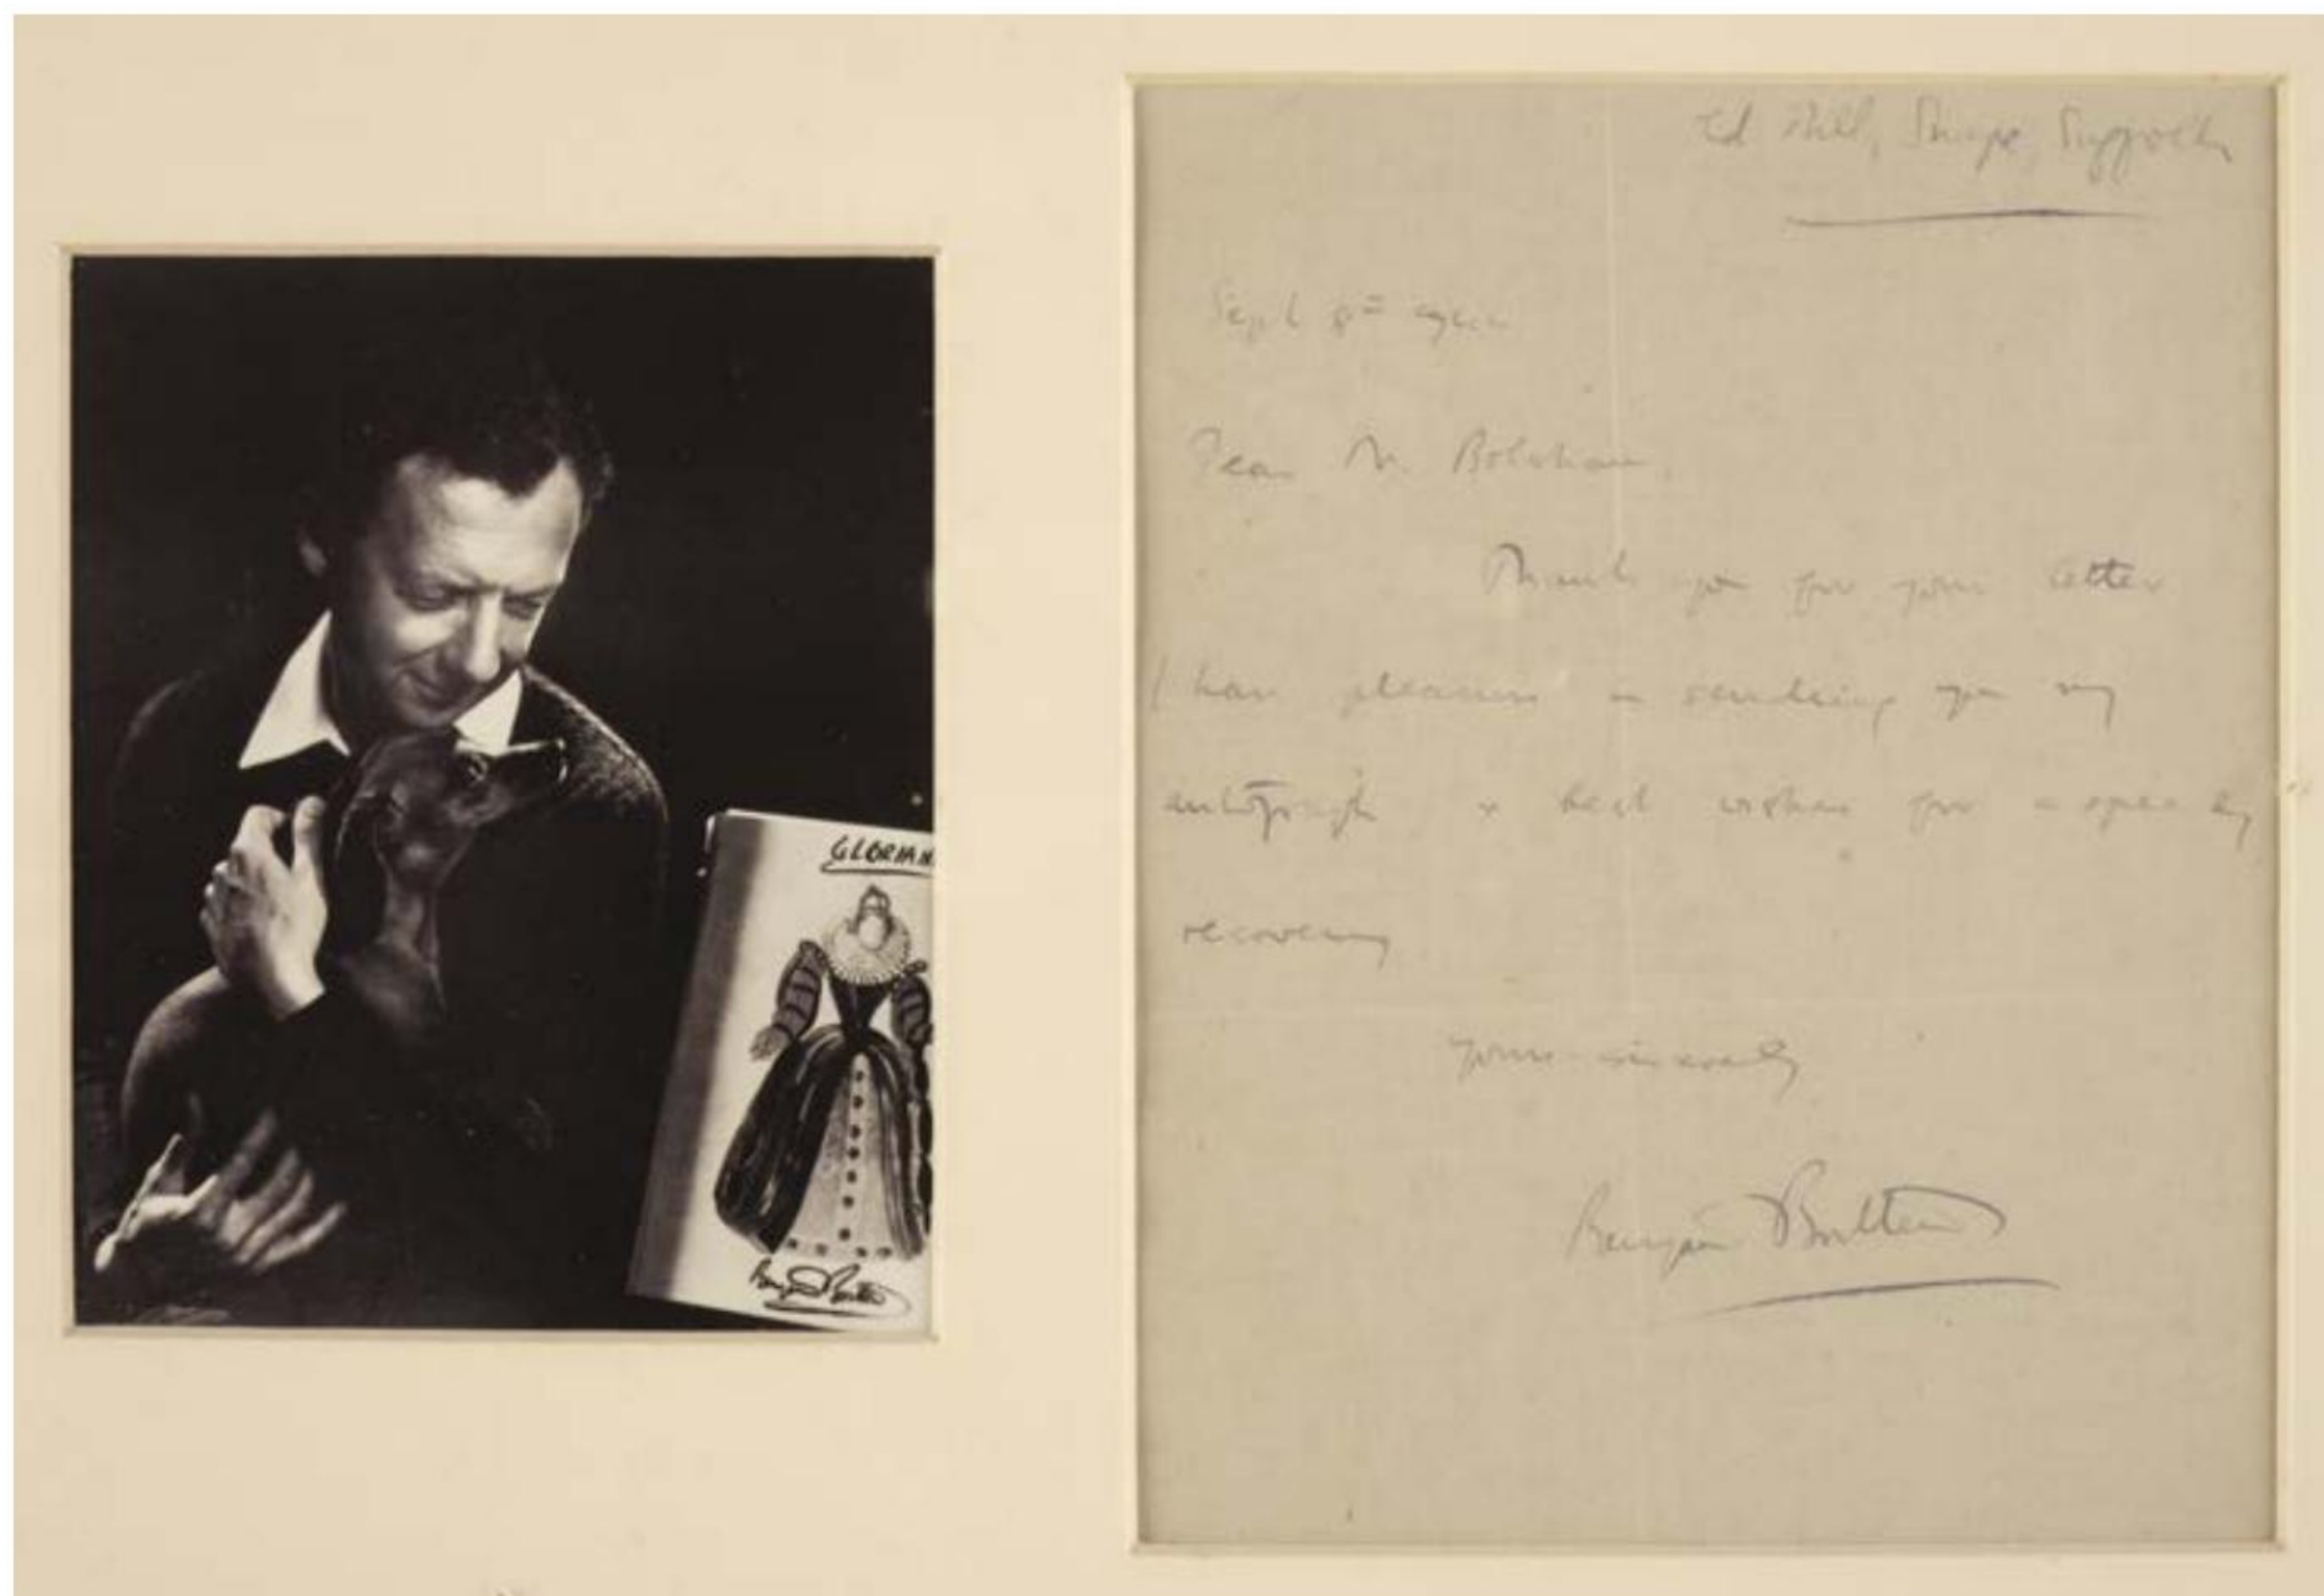 GLORIAN
Benjamin Britten
Old Mill, Snape, Suffolk
Sept 8th
Dear Mr.
Thank you for your letter
I have pleasure in sending you my
autograph & best wishes for a speedy
recovery
Yours sincerely
Benjamin Britten